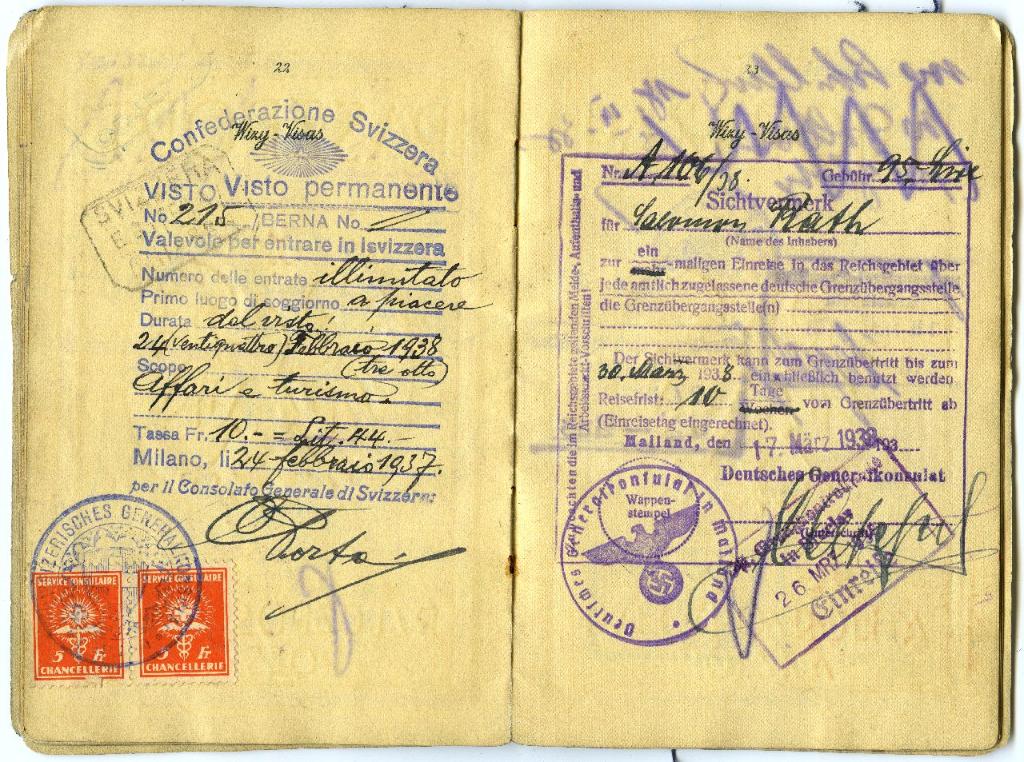 22
Wizy - Visas
Confederazione Svizzera
VISTO Visto permanente
No 215 /BERNA No
Valevole per entrare in Isvizzera
Numero delle entrate illimitato
Primo luogo di soggiorno a piacere
Durata del visto:
24 (ventiquattro) Febbraio 1938
Scopo (tre otto)
Affari e turismo.
Tassa Fr. 10.- = Lit. 44.-
Milano, li 24 febbraio 1937.
per il Consolato Generale di Svizzera:
SVIZZERA
SERVICE CONSULAIRE
5 Fr
CHANCELLERIE
SERVICE CONSULAIRE
5 Fr
CHANCELLERIE
23
Wizy - Visas
Nr. A 106/38. Gebühr: 95.- Lire
Sichtvermerk
für Salomon Rath
(Name des Inhabers)
ein
zur -maligen Einreise in das Reichsgebiet über
jede amtlich zugelassene deutsche Grenzübergangsstelle
die Grenzübergangsstelle(n)
Der Sichtvermerk kann zum Grenzübertritt bis zum
30. März 1938 einschließlich benutzt werden
Tage
Reisefrist: 10 Wochen vom Grenzübertritt ab
(Einreisetag eingerechnet).
Mailand, den 17. März 1938 193
Deutsches Generalkonsulat
Wappen-
stempel
(Unterschrift)
Deutsches Generalkonsulat in Mailand
26. MRZ. 1938
Einreise